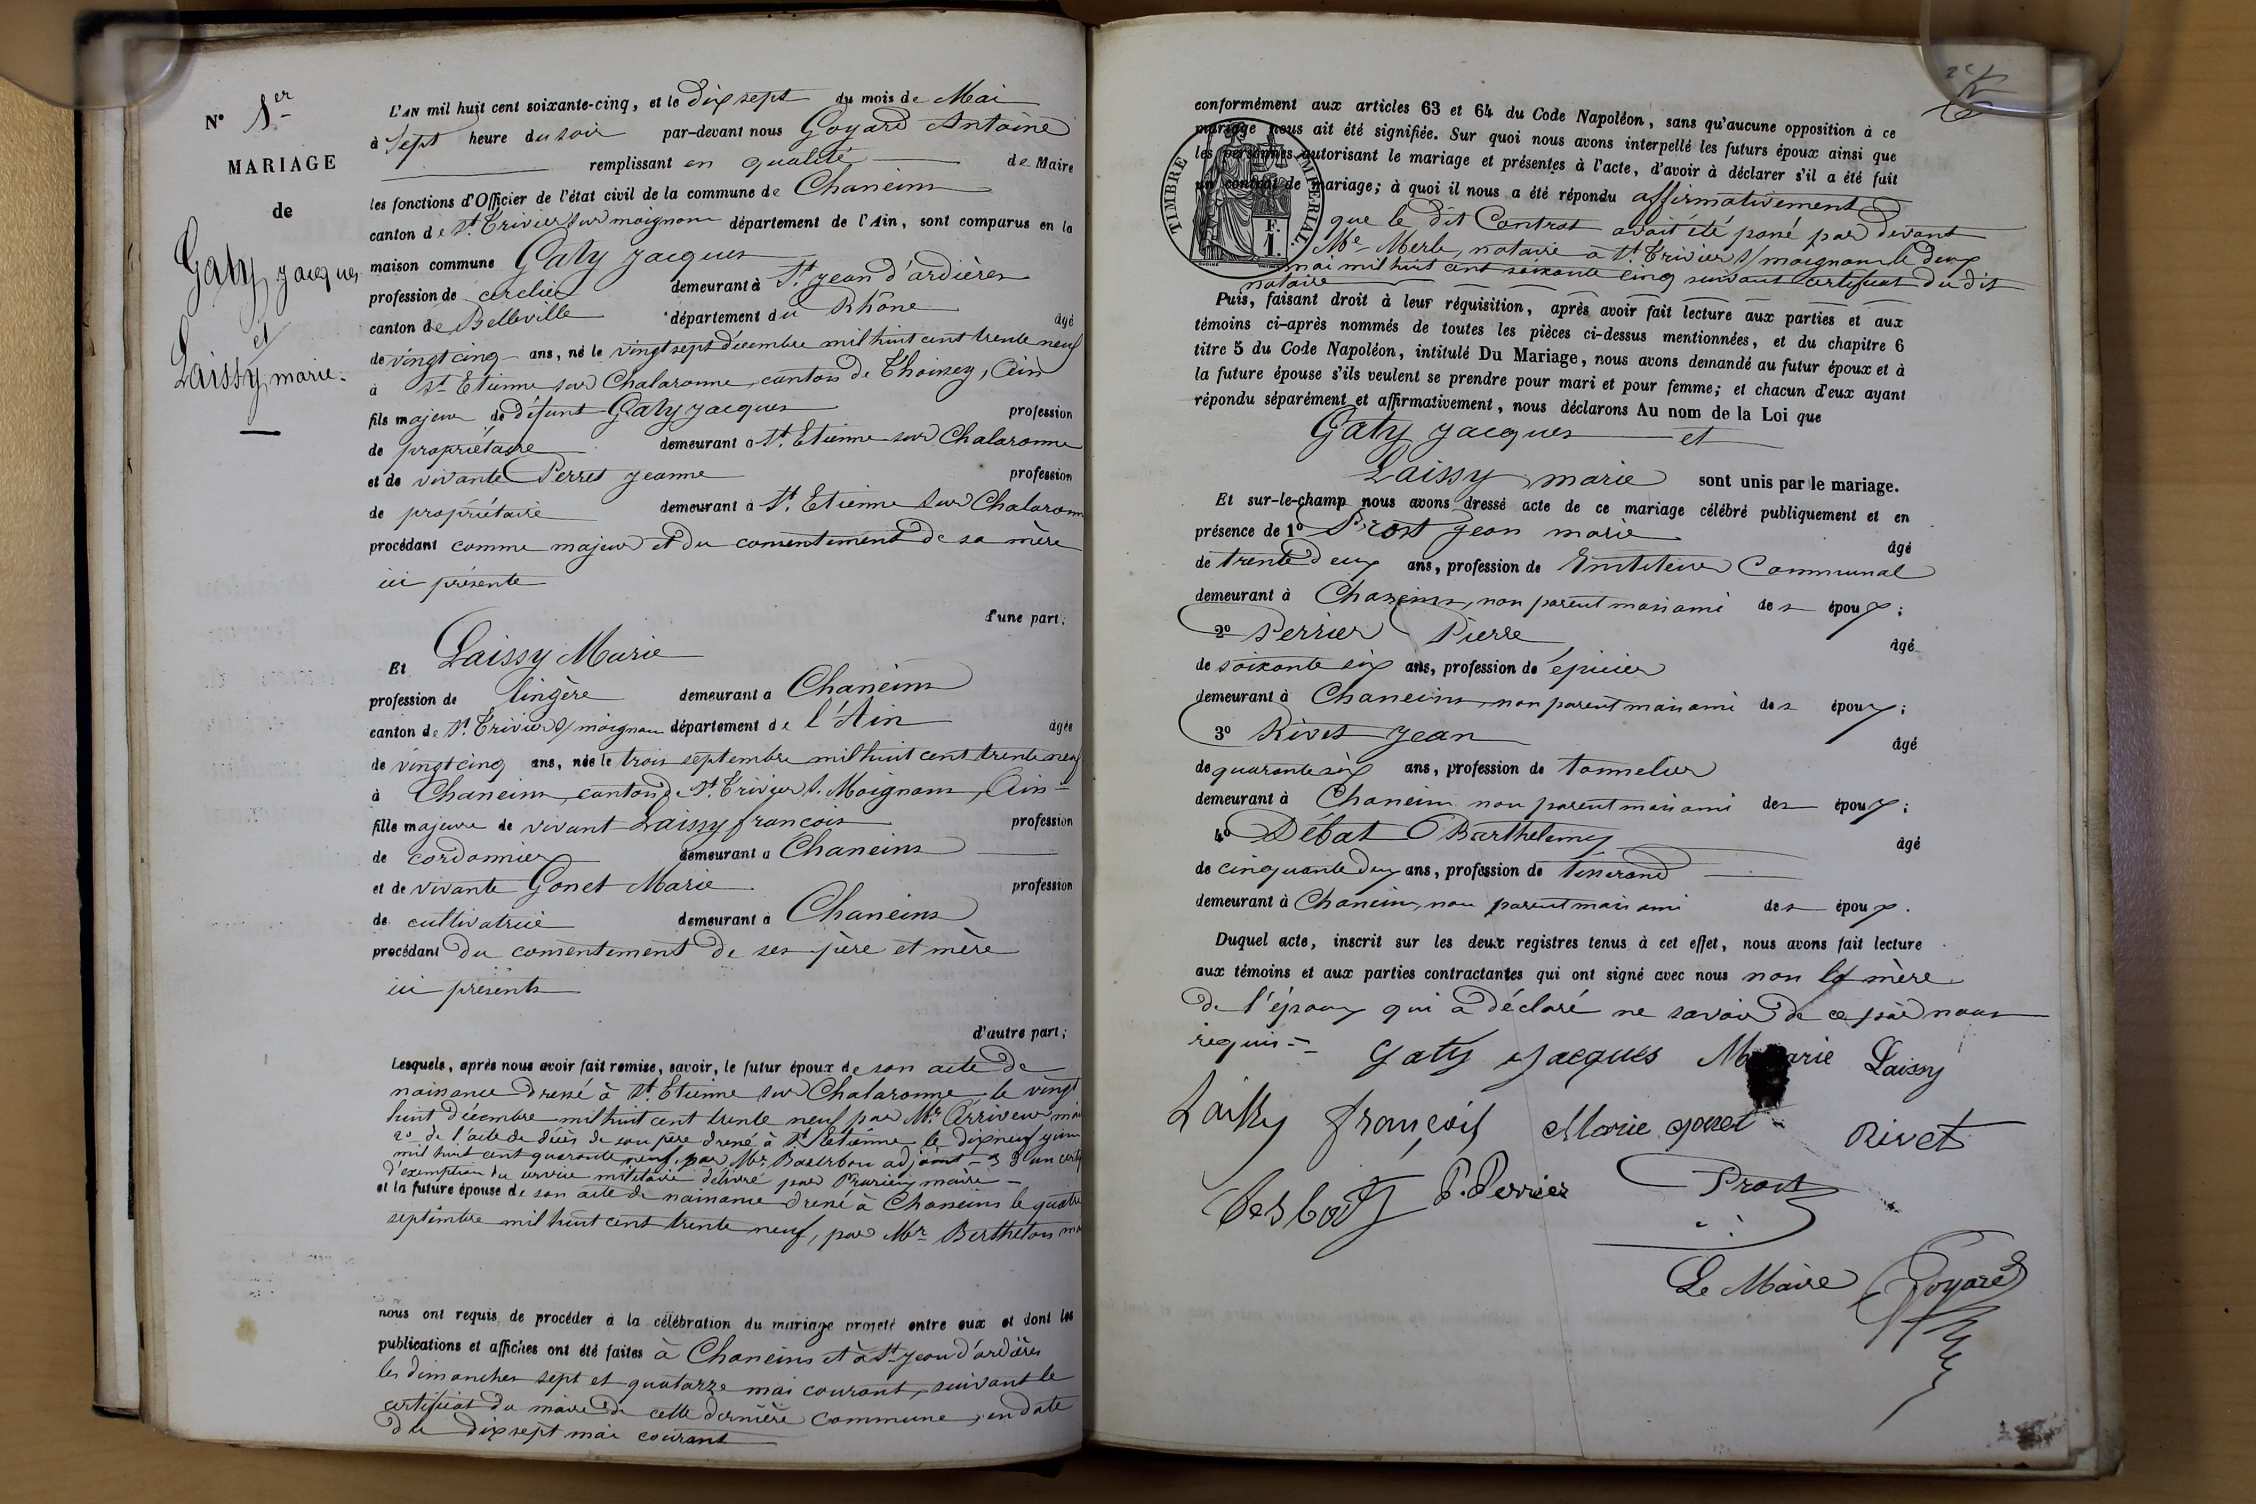 N° 1er
MARIAGE
de
Gaty Jacques
et
Laissy marie.
L'AN mil huit cent soixante-cinq, et le dix sept du mois de Mai
à sept heure du soir par-devant nous Goyard Antoine
remplissant en qualité de Maire
les fonctions d'Officier de l'état civil de la commune de Chaneins
canton de St. Trivier sur moignans département de l'Ain, sont comparus en la
maison commune Gaty Jacques
profession de cerclier demeurant à St. Jean d'ardières
canton de Belleville département du Rhône âgé
de vingt cinq ans, né le vingt sept décembre mil huit cent trente neuf
à St Etienne sur Chalaronne, canton de Thoissey, Ain
fils majeur de défunt Gaty Jacques profession
de propriétaire demeurant à St. Etienne sur Chalaronne
et de vivante Perret Jeanne profession
de propriétaire demeurant à St. Etienne sur Chalaronn
procédant comme majeur et du consentement de sa mère
ici présente
d'une part;
Et Laissy Marie
profession de lingère demeurant à Chaneins
canton de St. Trivier s/ moignans département de l'Ain âgée
de vingt cinq ans, née le trois septembre mil huit cent trente neuf
à Chaneins, canton de St. Trivier s. Moignans, Ain
fille majeure de vivant Laissy françois profession
de cordonnier demeurant à Chaneins
et de vivante Gonet Marie profession
de cultivatrice demeurant à Chaneins
procédant du consentement de ses père et mère
ici présents
d'autre part;
Lesquels, après nous avoir fait remise, savoir, le futur époux de son acte de
naissance dressé à St. Etienne sur Chalaronne le vingt
huit décembre mil huit cent trente neuf par Mr. Arriveur
2° de l'acte de décès de son père dressé à St Etienne le dix neuf
mil huit cent quarante neuf, par Mr. adjoint - 3° d'un
d'exemption du service militaire délivré par maire -
et la future épouse de son acte de naissance dressé à Chaneins le quatre
septembre mil huit cent trente neuf, par Mr. Berthelon
nous ont requis de procéder à la célébration du mariage projeté entre eux et dont les
publications et affiches ont été faites à Chaneins et à St Jean d'ardières
les dimanches sept et quatorze mai courant, suivant le
certificat du maire de cette dernière commune, en date
du dix sept mai courant
2e
TIMBRE IMPÉRIAL.
F.
1.
conformément aux articles 63 et 64 du Code Napoléon, sans qu'aucune opposition à ce
mariage nous ait été signifiée. Sur quoi nous avons interpellé les futurs époux ainsi que
les personnes autorisant le mariage et présentes à l'acte, d'avoir à déclarer s'il a été fait
un contrat de mariage; à quoi il nous a été répondu affirmativement
que le dit Contrat avait été passé par devant
Me Merle, notaire à St. Trivier s/ moignans le deux
mai mil huit cent soixante cinq suivant certificat du dit
notaire
Puis, faisant droit à leur réquisition, après avoir fait lecture aux parties et aux
témoins ci-après nommés de toutes les pièces ci-dessus mentionnées, et du chapitre 6
titre 5 du Code Napoléon, intitulé Du Mariage, nous avons demandé au futur époux et à
la future épouse s'ils veulent se prendre pour mari et pour femme; et chacun d'eux ayant
répondu séparément et affirmativement, nous déclarons Au nom de la Loi que
Gaty Jacques et
Laissy marie sont unis par le mariage.
Et sur-le-champ nous avons dressé acte de ce mariage célébré publiquement et en
présence de 1° Prost Jean marie âgé
de trente deux ans, profession de Instituteur Communal
demeurant à Chaneins, non parent mais ami des époux;
2° Perrier Pierre âgé
de soixante six ans, profession de épicier
demeurant à Chaneins, non parent mais ami des époux;
3° Rivet Jean âgé
de quarante six ans, profession de tonnelier
demeurant à Chaneins non parent mais ami des époux;
4° Débat Barthelemy âgé
de cinquante deux ans, profession de tisserand
demeurant à Chaneins, non parent mais ami des époux.
Duquel acte, inscrit sur les deux registres tenus à cet effet, nous avons fait lecture
aux témoins et aux parties contractantes qui ont signé avec nous non la mère
de l'époux qui a déclaré ne savoir de ce par nous
requis =
Gaty Jacques Marie Laissy
Laissy françois Marie gonet Rivet
P. Perrier Prost
Le Maire Goyard